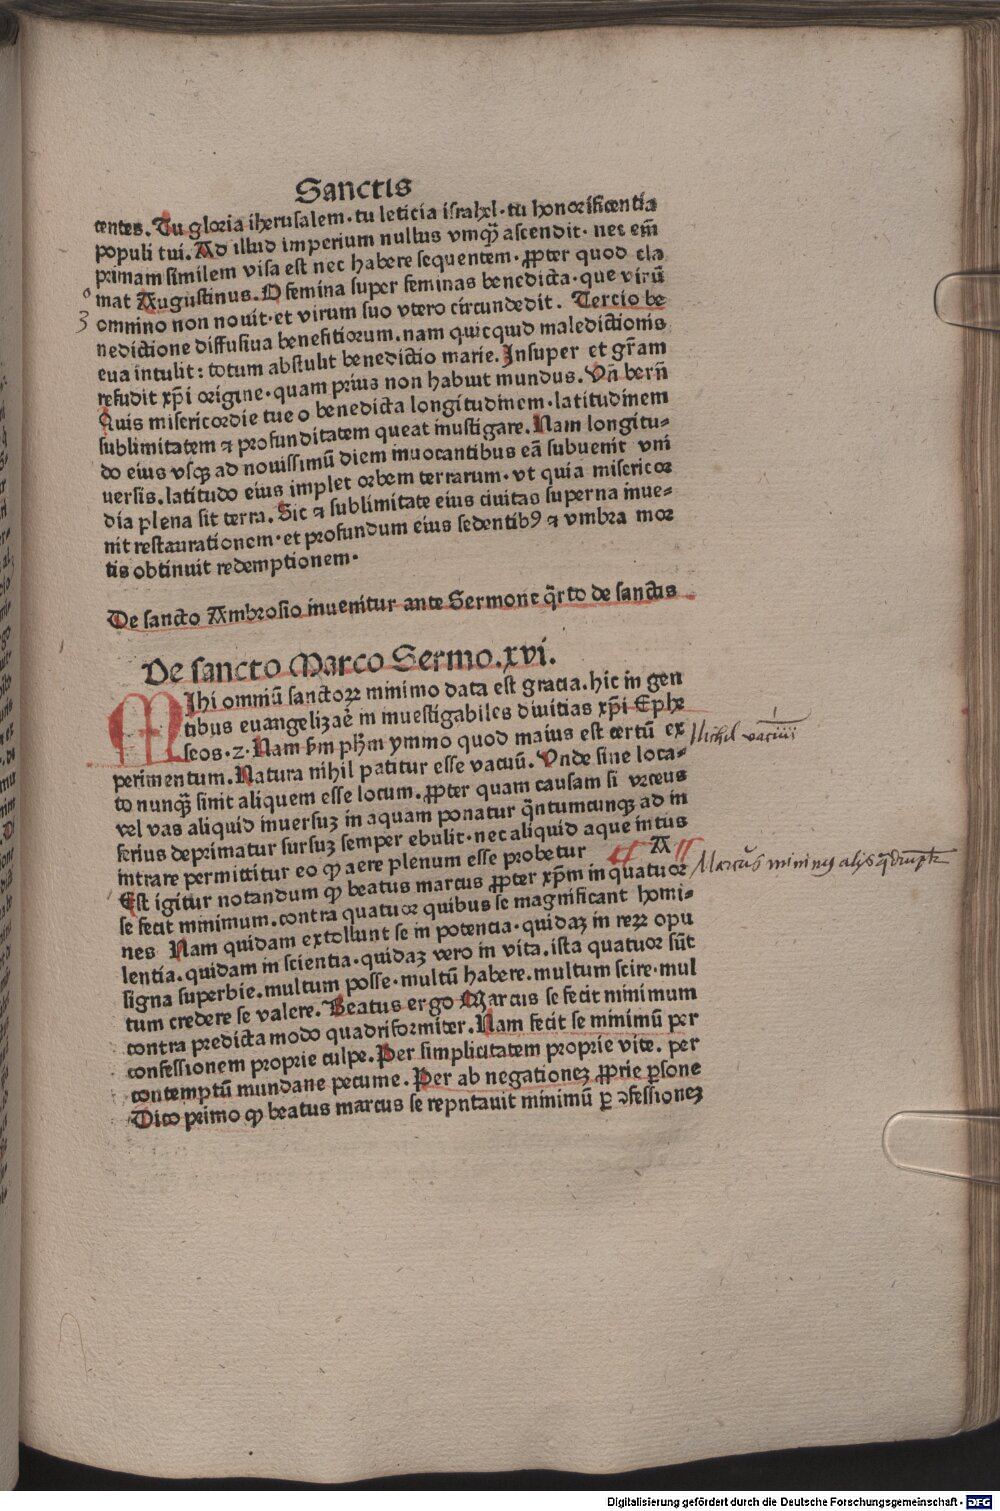 Sanctis
centes. Tu gloria iherusalem. tu leticia israhel. tu honorificentia
populi tui. Ad illud imperium nullus vmqȝ ascendit. nec em̄
primam similem visa est nec habere sequentem. ꝓpter quod cla
mat Augustinus. O femina super feminas benedicta. que virū
3o
omnino non nouit. et virum suo vtero circundedit. Tercio be
nedictione diffusiua benefitiorum. nam quicquid maledictionis
eua intulit: totum abstulit benedictio marie. Insuper et gr̄am
refudit xp̄i origine. quam prius non habuit mundus. Vn̄ bern̄
Quis misericordie tue o benedicta longitudinem. latitudinem
sublimitatem ⁊ profunditatem queat inustigare. Nam longitu⸗
do eius vsqȝ ad nouissimū diem inuocantibus eā subuenit vni
uersis. latitudo eius implet orbem terrarum. vt quia misericor
dia plena sit terra. Sic ⁊ sublimitate eius ciuitas superna inue⸗
nit restaurationem. et profundum eius sedentibꝰ ⁊ vmbra mor
tis obtinuit redemptionem.
De sancto Ambrosio inuenitur ante Sermone q̄rto de sanctis
De sancto Marco Sermo. xvi.
MIhi omniū sanctoꝝ minimo data est gracia. hic in gen
tibus euangelizar̄e in inuestigabiles diuitias xp̄i Ephe
seos. 2. Nam s̄m ph̄m ymmo quod maius est certū ex
Nichil vacuū
perimentum. Natura nihil patitur esse vacuū. Vnde sine loca⸗
to nunqȝ sinit aliquem esse locum. ꝓpter quam causam si vrceus
vel vas aliquid inuersuȝ in aquam ponatur q̄ntumcunqȝ ad in
ferius deprimatur sursuȝ semper ebulit. nec aliquid aque intus
intrare permittitur eo ꝙ aere plenum esse probetur A
Est igitur notandum ꝙ beatus marcus ꝓpter xp̄m in quatuor
se fecit minimum. contra quatuor quibus se magnificant homi⸗
nes Nam quidam extollunt se in potencia. quidaȝ in reꝝ opu
lentia. quidam in scientia. quidaȝ vero in vita. ista quatuor sūt
signa superbie. multum posse. multū habere. multum scire. mul
tum credere se valere. Beatus ergo Marcus se fecit minimum
contra predicta modo quadriformiter. Nam fecit se minimū per
confessionem proprie culpe. Per simplicitatem proprie vite. per
contemptū mundane pecunie. Per ab negationeȝ ꝓprie ꝑsone
Dico primo ꝙ beatus marcus se reputauit minimū ꝑ ↄfessioneȝ
Digitalisierung gefördert durch die Deutsche Forschungsgemeinschaft - DFG